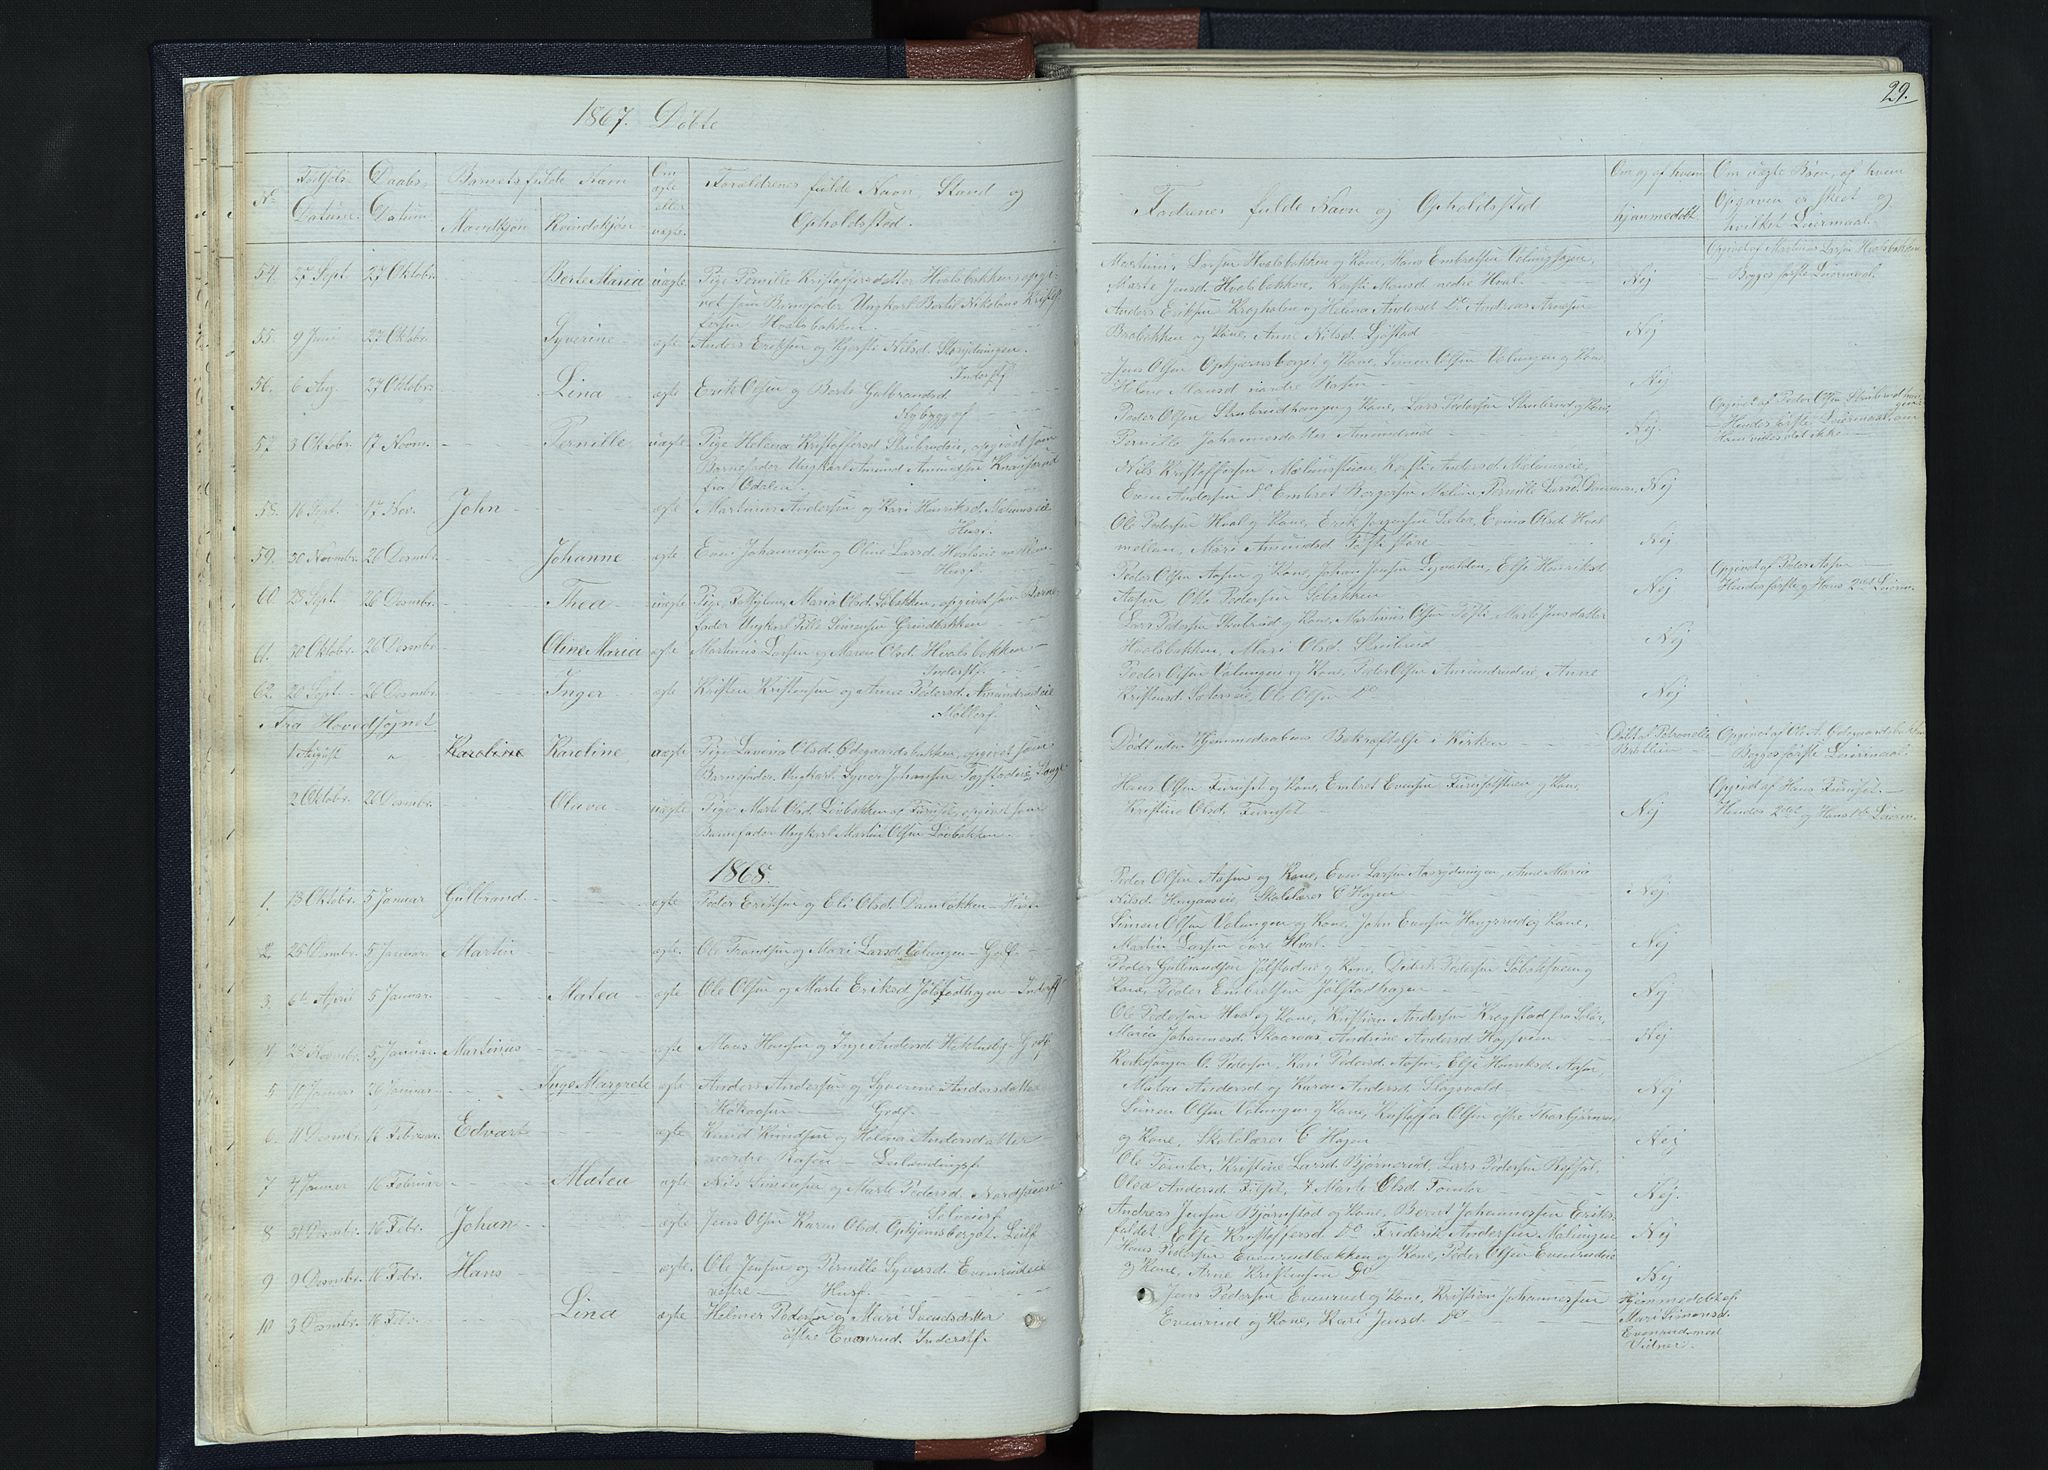 1867. Döbte
29.
No
Fødsels Datum.
Daabs Datum
Barnets fulde Navn
Mandkjøn
Kvindekjøn
Om ægte eller uægte.
Forældrenes fulde Navn Stand og
Opholdssted.
Fadrenes fulde Navn og Opholdssted
Om og af hvem
hjemmedøbt
Om uægte Børn, af hvem
Opgaven er skeet og
hvilket Leiermaal.
54. 27 Sept. 27 Oktobr. Berte Maria uægte Pige Pernille Kristoffersdatter Hvalsbakken, opgi-
vet som Barnefader Ungkarl Bertel Nikolaus Kristof-
fersen Hvalsbakken.
Martinus Larsen Hvalsbakken og Kone, Hans Embretsen
Marte Jensd. Hvalsbakken, Kersti Monsd. nedre Hval.
Nej
Opgivet af Martinus Larsen Hvalsbakken
Begges første Leiermaal.
55. 9 Juni 27 Oktobr. Syverine ægte Anders Eriksen og Kjersti Nilsd.
Inderst
Anders Eriksen Kragholen og Helena Andersd. Do Andreas Arnesen
Brobakken og Kone, Anne Nilsd. Sjøstad
Nej
56. 6 Aug. 27 Oktobr. Lina ægte Erik Olsen og Berte Gulbrandsd.
Nybygg
Jens Olsen Opkjernsberget og Kone, Simen Olsen Valungen og Kone,
Helene Monsd. nordre Rasen
Nej
57. 3 Oktobr. 17 Novm. Pernille uægte Pige Helena Kristoffersd. Skulrudeie, opgivet som
Barnefader Ungkarl Amund Amundsen
fra Odalen
Peder Olsen Skulrudhaugen og Kone, Lars Pedersen Skulrud og Kone,
Pernille Johannesdatter Amundrud
Nej.
Opgivet af Peder Olsen
Hendes første Leiermaal, om
Hans vides det ikke
58. 16 Sept. 17 Nov. John ægte Martinus Andersen og Kari Henriksd.
Husf.
Nils Kristoffersen Kersti Andersd.
Even Andersen Do Embret Borgersen Pernille Larsd.
Nej
59. 30 Novembr. 26 Desmbr. Johanne ægte Even Johannesen og Oline Larsd. Hvalseie mellem
Husf.
Ole Pedersen Hval og Kone, Erik Jørgensen Sæter, Evina Olsd. Hval
mellem, Mari Amundsd.
Nej
60. 28 Sept. 26 Desmbr. Thea uægte Pige, Fattiglem, Maria Olsd. Sobakken, opgivet som Barne-
fader Ungkarl Simensen Grindbakken
Peder Olsen Aasen og Kone, Johan Jensen Else Henriksd.
Aasen Otto Pedersen Sobakken
Nej
Opgivet af Peder Aasen
Hendes første og Hans 2det Leierm.
61. 30 Oktobr. 26 Desmbr. Oline Maria ægte Martinus Larsen og Maren Olsd. Hvalsbakken
Inderst.
Lars Pedersen Skulrud og Kone, Martinus Olsen Marte Jensdatter
Hvalsbakken, Mari Olsd. Skulrud
Nej
62. 20 Sept. 26 Desmbr. Inger ægte Kristen Kristensen og Anne Pedersd. Amundrudeie
Møllerf.
Peder Olsen Valungen og Kone, Peder Olsen Amundrudeie, Anne
Kristensd. Ole Olsen Do
Nej
Fra Hovedsognet
1 August " Karoline Karoline uægte Pige Lovisa Olsd. Ødegaardsbakken, opgivet som
Barnefader Ungkarl Syver Johansen
Død uden Hjemmedaabens Bekræftelse i Kirken
Døbt af Petronelle
Opgivet af Ole A. Ødegaardsbakken
Begges første Leiermaal
2 Oktobr. 26 Desmbr. Olava uægte Pige Marte Olsd. Løvbakken af Furuset, opgivet som
Barnefader Ungkarl Martin Olsen Løvbakken
Hans Olsen Furuset og Kone, Embret Evensen Furusetsveen og Kone,
Kristine Olsd. Furuset
Nej
Opgivet af Hans Furuset.
Hendes 2det og Hans 1te Leierm.
1868.
1. 13 Oktobr. 5 Januar Gulbrand ægte Peder Eriksen og Eli Olsd. Dambakken Husf.
Peder Olsen Aasen og Kone, Even Larsen Aasrydningen, Anne Maria
Nilsd. Skolelærer C Hagen
Nej.
2. 25 Desmbr. 5 Januar Martin ægte Ole Frandsen og Mari Larsd. Valungen Gdf.
Simen Olsen Valungen og Kone, John Evensen Haugsrud og Kone,
Martin Larsen øvre Hval.
Nej
3. 6te April 5 Januar. Matea ægte Ole Olsen og Marte Eriksd. Jølstadhagen Inderst
Peder Gulbrandsen Jølstadeie og Kone, Didrik Pedersen og
Kone, Peder Embretsen Jølstadhagen
Nej
4 24 Novembr. 5 Januar Martinus ægte Mons Hansen og Inge Andersd. Gdf.
Ole Pedersen Hval og Kone, Kristian Andersen Krogstad fra Solør,
Maria Johannesd. Skaaraas Andrine Andersd. Hagsveen
Nej
5 10 Januar 26 Januar Inge Margrete ægte Anders Andersen og Syverine Andersdatter
Gdf.
Kirkesanger O. Pedersen, Kari Pedersd. Aasen, Else Henriksd. Aasen,
Matea Andersd. og Karen Andersd. Slagsvold
Nej
6. 11 Desmbr. 16 Februar Edvart ægte Knud Knudsen og Helena Andersdatter
nordre Rasen Leilændingsf.
Simen Olsen Valungen og Kone, Kristoffer Olsen østre Thorbjørnsen
og Kone, Skolelærer C Hagen
Nej
7 4 Januar 16 Februar Matea ægte Nils Simensen og Marte Pedersd. Nordsveen
Selveierf.
Ole Tømter, Kristine Larsd. Bjørnerud, Lars Pedersen
Olea Andersd. Marte Olsd. Tømter
Nej.
8 31 Desmbr. 16 Febr. Johan ægte Jens Olsen Karen Olsd. Opkjernsberget Leilf
Andreas Jensen Bjørnstad og Kone, Bernt Johannessen Eriks-
faldet, Else Kristoffersd. Do Frederik Andersen
Nej
9 9 Desmbr. 16 Febr. Hans ægte. Ole Jensen og Pernille Syversd. Evenrudeie
vestre Husf.
Hans Pedersen Evenrudbakken og Kone, Peder Olsen Evenrudeie
og Kone, Arne Kristensen Do
Nej
10 3 Desmbr. 16 Febr. Lina ægte Helmer Pedersen og Mari Svendsdatter
østre Evenrud. Inderstf.
Jens Pedersen Evenrud og Kone, Kristian Johannessen
Evenrud og Kone, Kari Jensd. Do
Hjemmedøbt af
Mari Simensd.
Evenrud med
Vidner.